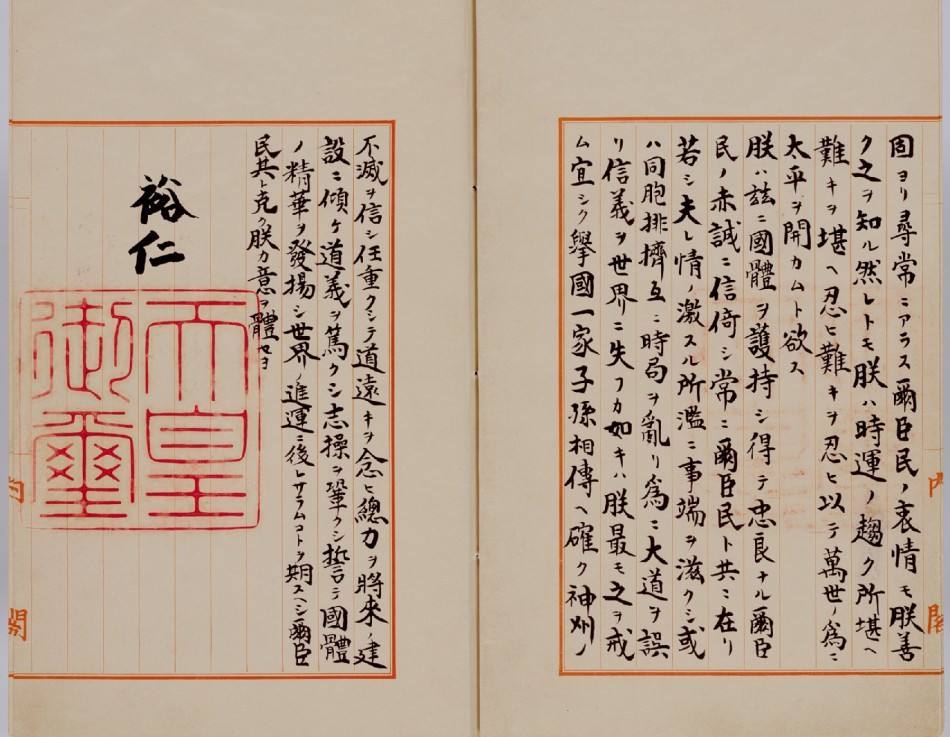 固ヨリ尋常ニアラス爾臣民ノ衷情モ朕善
ク之ヲ知ル然レトモ朕ハ時運ノ趨ク所堪ヘ
難キヲ堪ヘ忍ヒ難キヲ忍ヒ以テ萬世ノ爲ニ
太平ヲ開カムト欲ス
朕ハ玆ニ國體ヲ護持シ得テ忠良ナル爾臣
民ノ赤誠ニ信倚シ常ニ爾臣民ト共ニ在リ
若シ夫レ情ノ激スル所濫ニ事端ヲ滋クシ或
ハ同胞排擠互ニ時局ヲ亂リ爲ニ大道ヲ誤
リ信義ヲ世界ニ失フカ如キハ朕最モ之ヲ戒
ム宜シク擧國一家子孫相傳ヘ確ク神州ノ
不滅ヲ信シ任重クシテ道遠キヲ念ヒ總力ヲ將來ノ建
設ニ傾ケ道義ヲ篤クシ志操ヲ鞏クシ誓テ國體
ノ精華ヲ發揚シ世界ノ進運ニ後レサラムコトヲ期スヘシ爾臣
民其レ克ク朕カ意ヲ體セヨ
裕仁
天皇
御璽
内閣